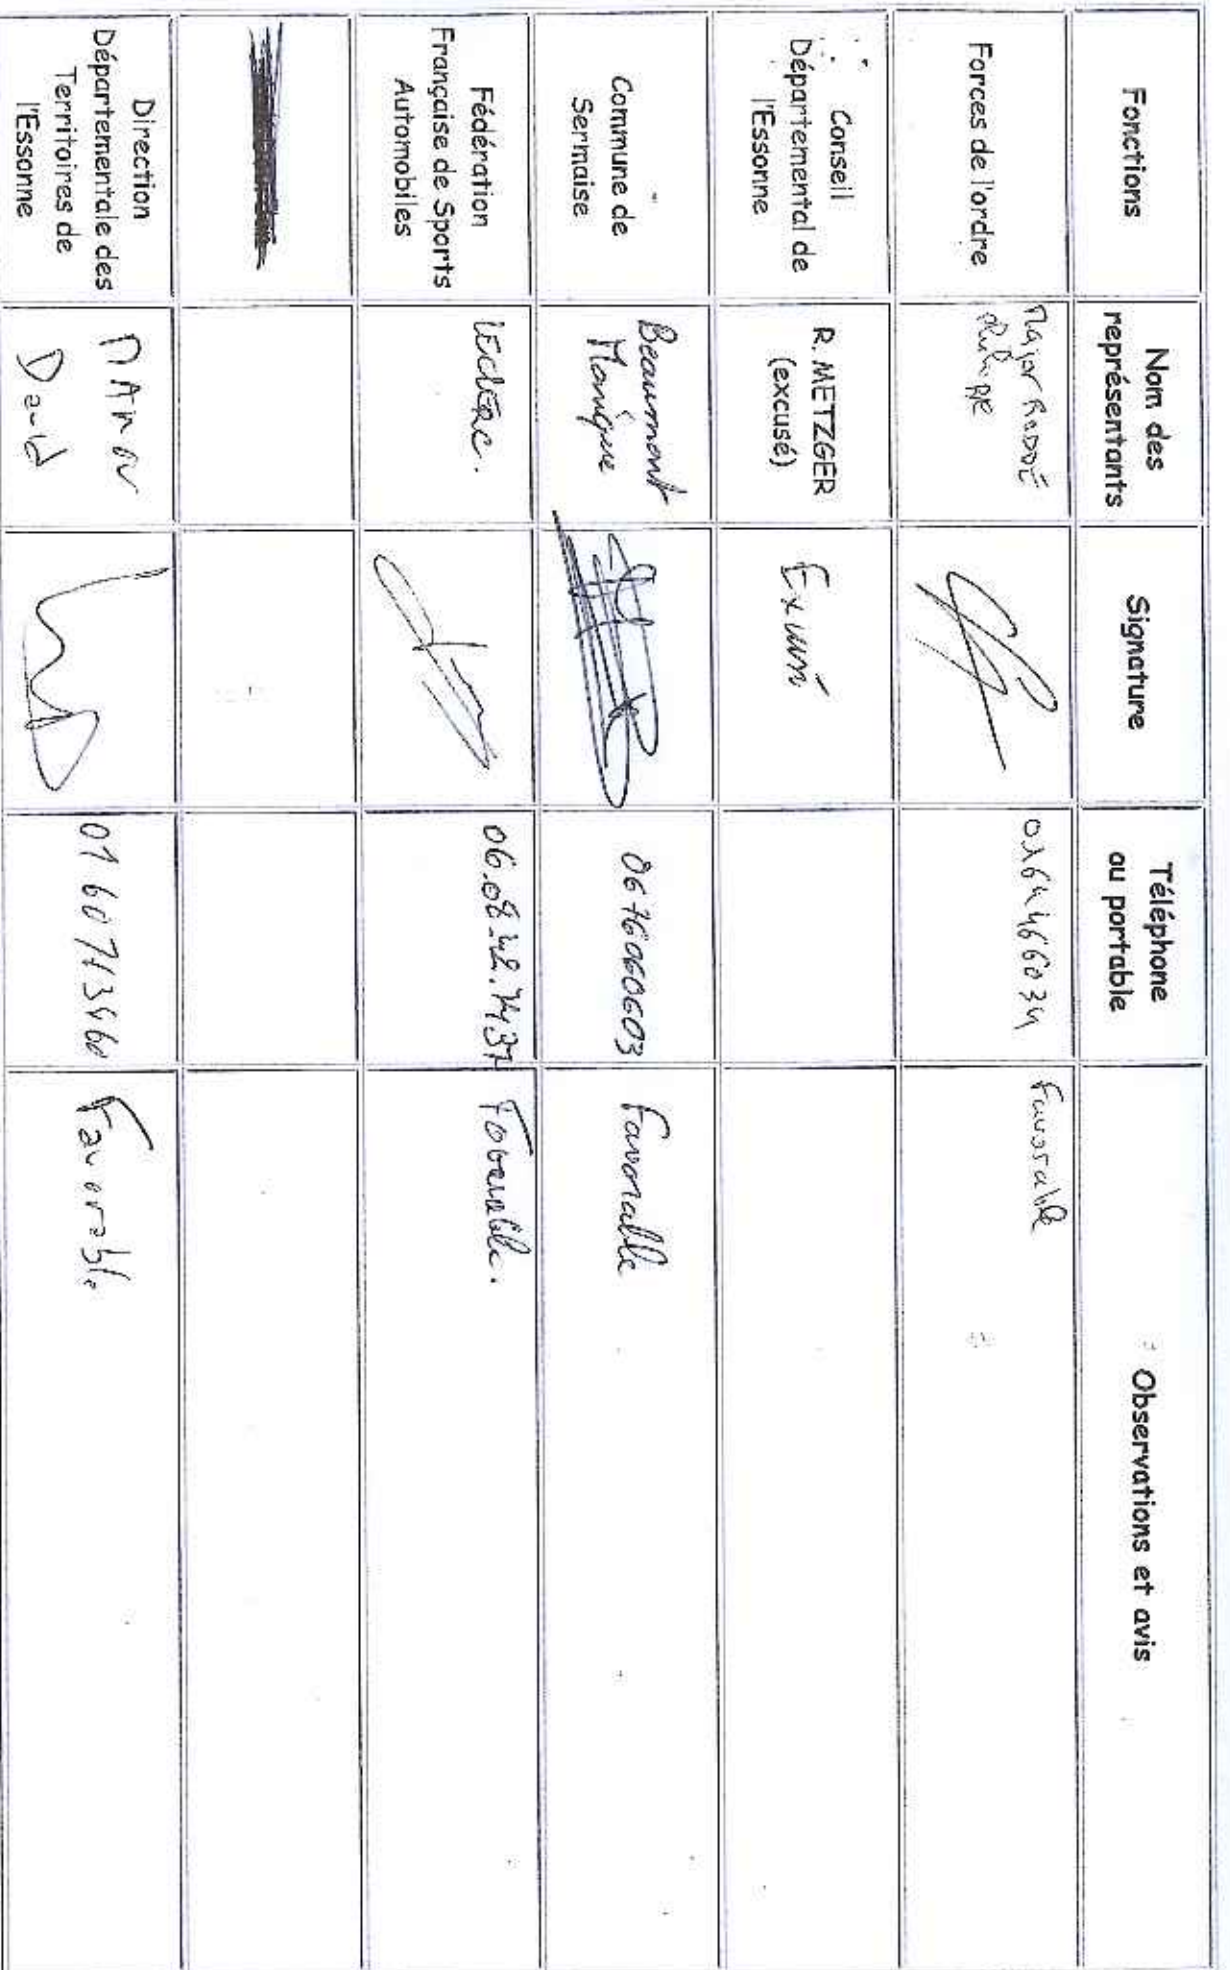 Fonctions
Nom des
représentants
Signature
Téléphone
ou portable
Observations et avis
Forces de l'ordre
Major
Philippe
0164466034
Favorable
Conseil
Départemental de
l'Essonne
R. METZGER
(excusé)
Commune de
Sermaise
Beaumont
Monique
0676060603
Favorable
Fédération
Française de Sports
Automobiles
LECLERC.
Favorable.
Direction
Départementale des
Territoires de
l'Essonne
David
0160713460
Favorable